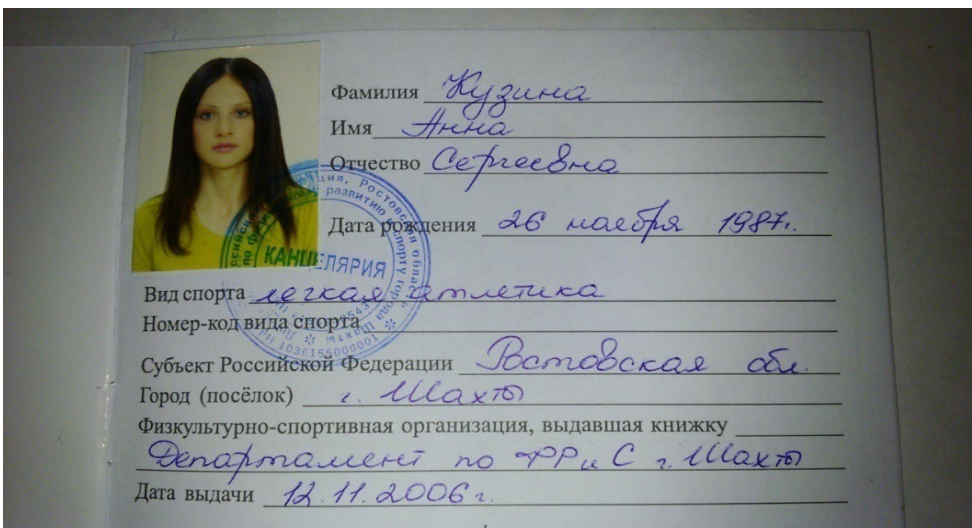 Фамилия Кузина
Имя Анна
Отчество Сергеевна
Дата рождения 26 ноября 1987г.
КАНЦЕЛЯРИЯ
Вид спорта легкая атлетика
Номер-код вида спорта
Субъект Российской Федерации Ростовская обл.
Город (посёлок) г. Шахты
Физкультурно-спортивная организация, выдавшая книжку
Департамент по ФР и С г. Шахты
Дата выдачи 12.11.2006г.